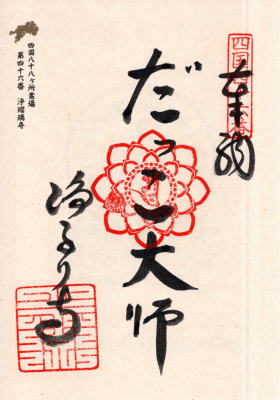 奉納
だっこ大師
浄るり寺
四国八十八ヶ所霊場
第四十六番 浄瑠璃寺